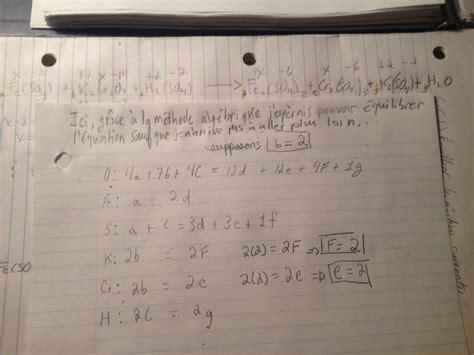 x -2 +2 -14 +2 -2 x -6 x -6 +2 -2
Fe(SO4) + K2Cr2O7 + H2(SO4) → Fe2(SO4)3 + Cr2(SO4)3 + K2(SO4) + H2O
Ici, grâce à la méthode algébrique j'espérais pouvoir équilibrer
l'équation sauf que je n'arrive pas à aller plus loin...
supposons b=2
O: 4a+7b+4C = 12d + 12e + 4F + 1g
F: a = 2d
S: a + c = 3d + 3e + 1f
K: 2b = 2F 2(2) = 2F => F=2
Cr: 2b = 2e 2(2) = 2e => e=2
H: 2C = 2g